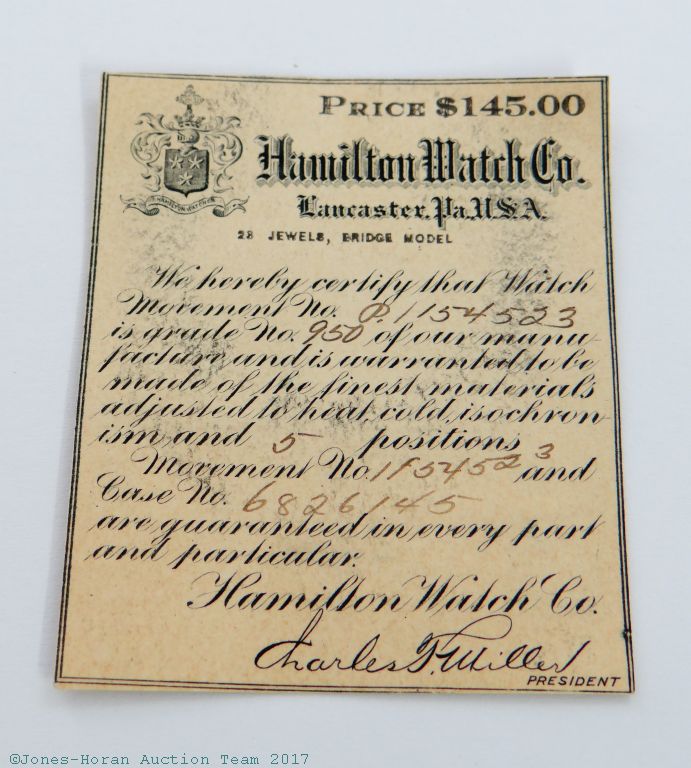 PRICE $145.00
Hamilton Watch Co.
Lancaster, Pa. U.S.A.
23 JEWELS, BRIDGE MODEL
We hereby certify that Watch
Movement No. P. 1154523
is grade No. 950 of our manu-
facture and is warranted to be
made of the finest materials
adjusted to heat, cold, isochron-
ism and 5 positions
Movement No. 1154523 and
Case No. 6826145
are guaranteed in every part
and particular.
Hamilton Watch Co.
Charles F. Miller
PRESIDENT
©Jones-Horan Auction Team 2017